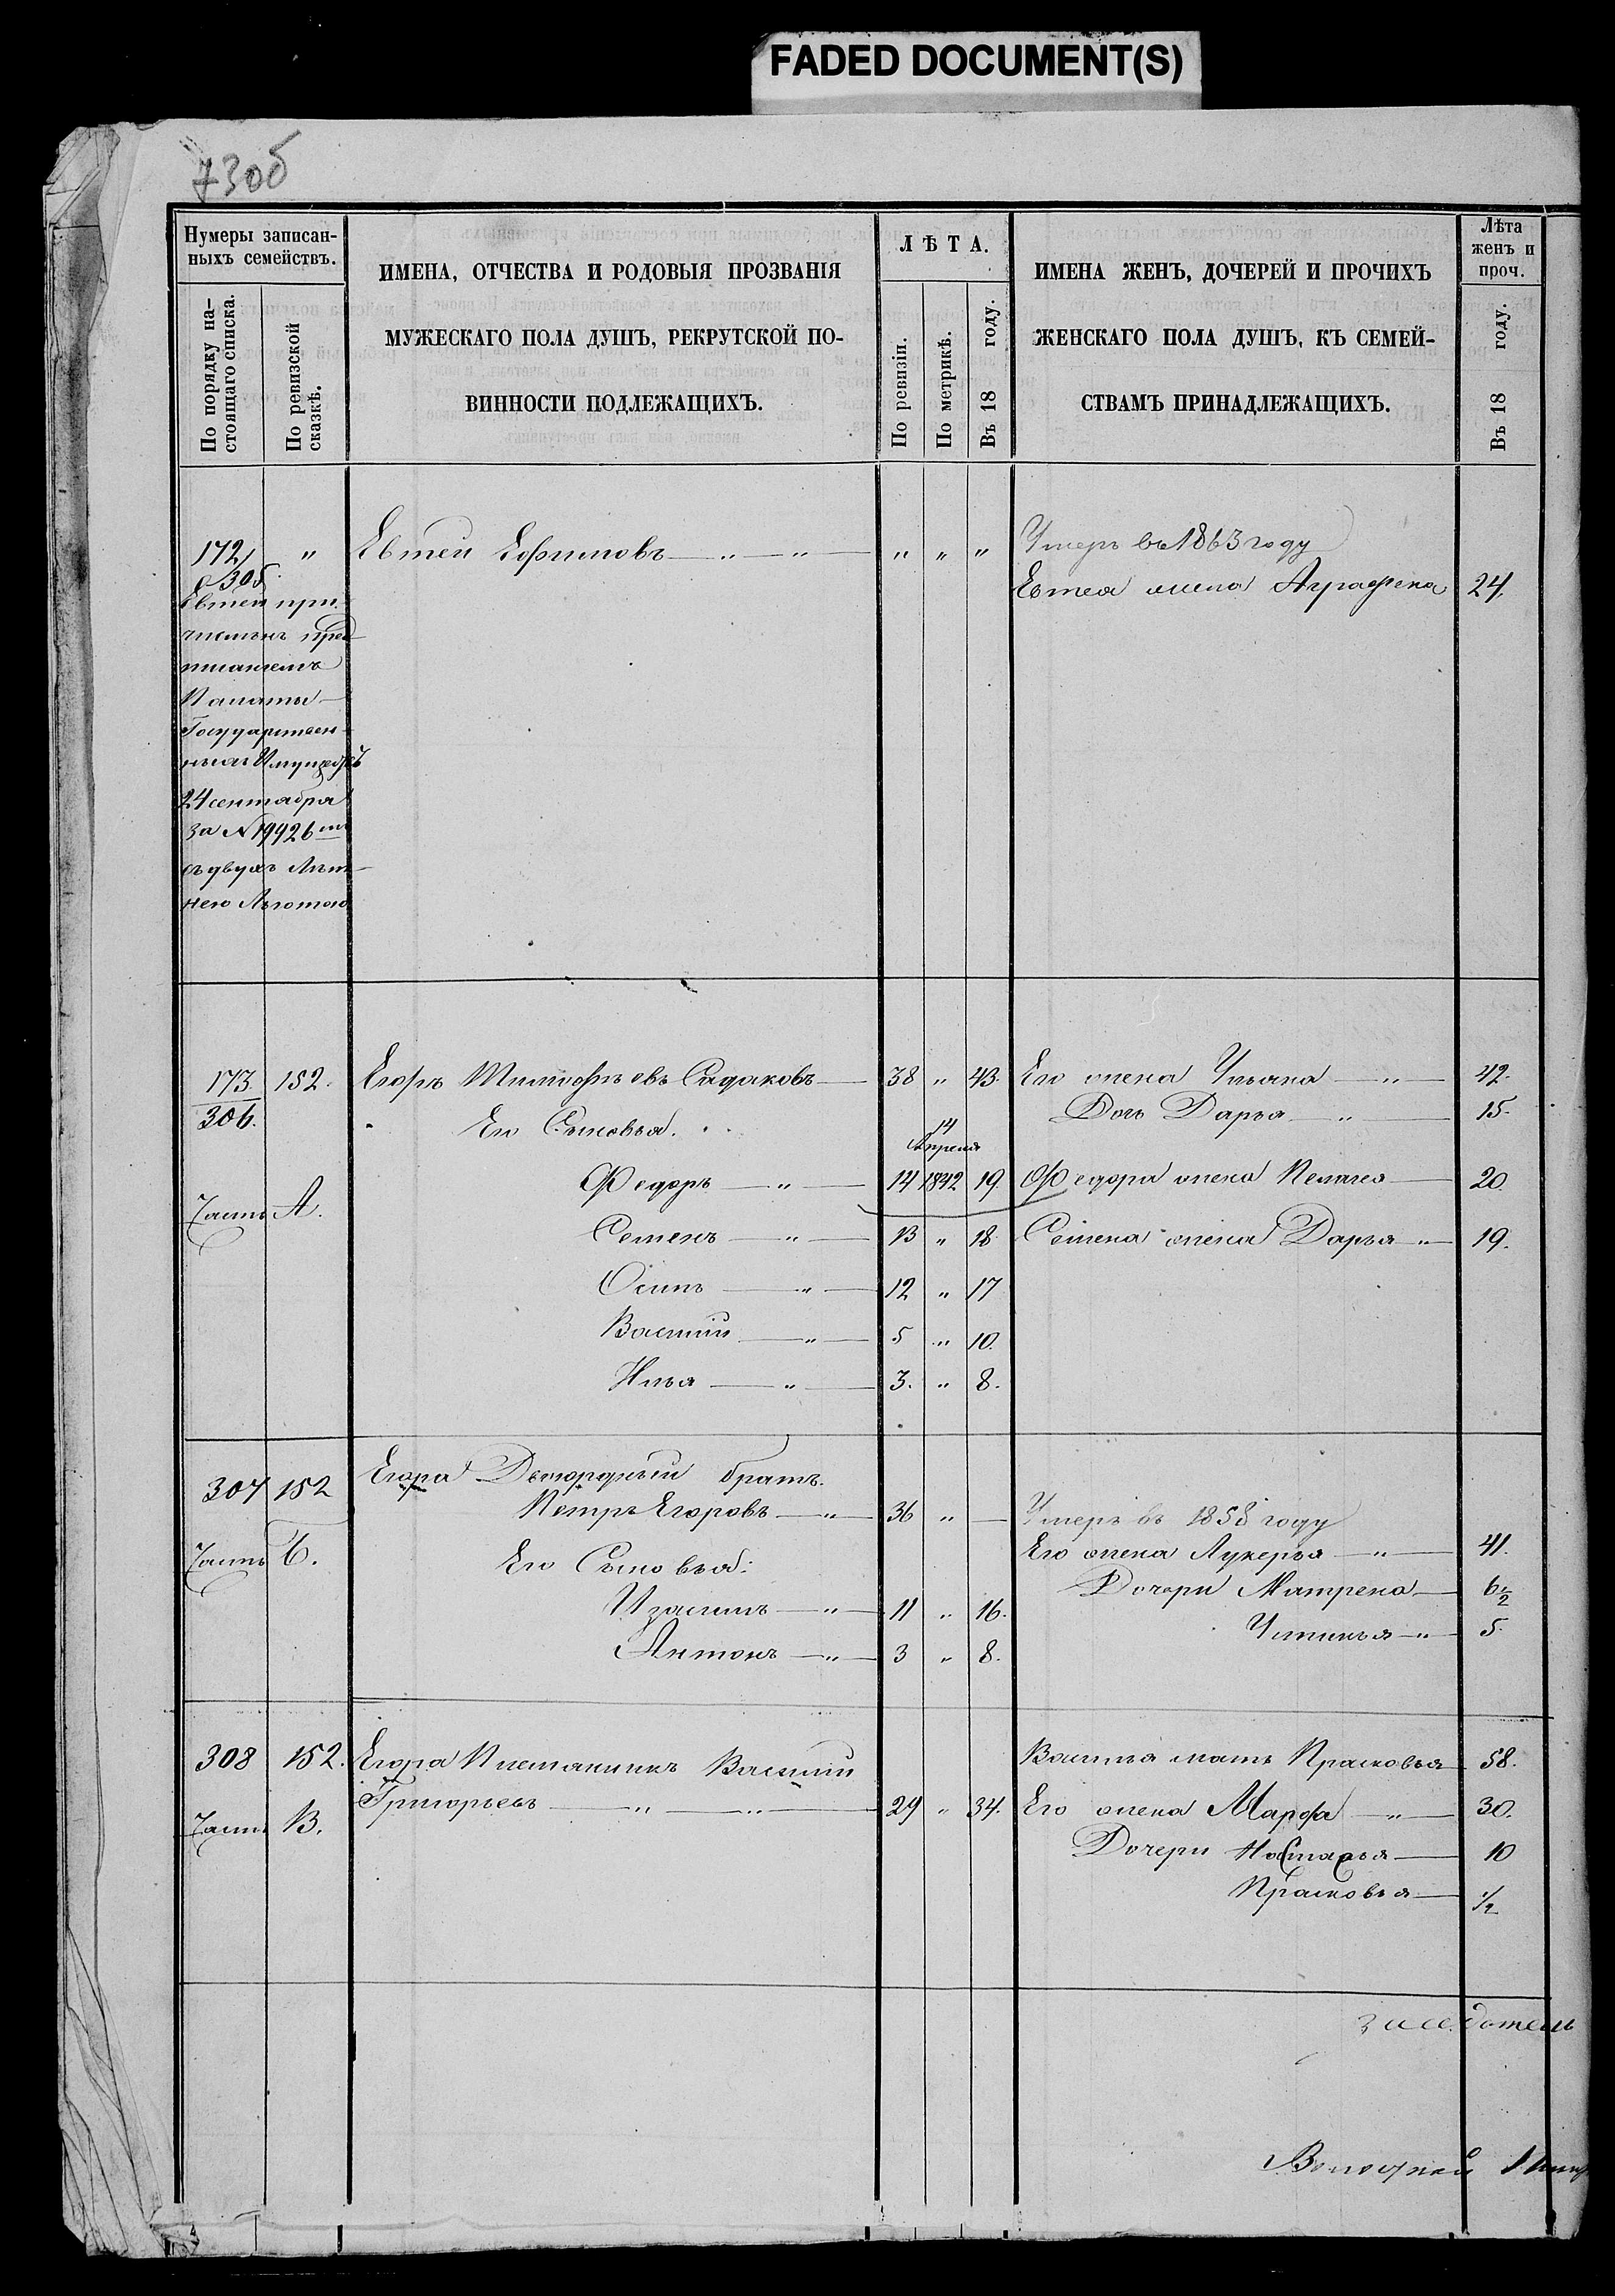 FADED DOCUMENT(S)
73об
Нумеры записан-
ныхъ семействъ.
По порядку на-
стоящаго списка.
По ревизской
сказкѣ.
ИМЕНА, ОТЧЕСТВА И РОДОВЫЯ ПРОЗВАНІЯ
МУЖЕСКАГО ПОЛА ДУШЪ, РЕКРУТСКОЙ ПО-
ВИННОСТИ ПОДЛЕЖАЩИХЪ.
ЛѢТА.
По ревизіи.
По метрикѣ.
Въ 18 году.
ИМЕНА ЖЕНЪ, ДОЧЕРЕЙ И ПРОЧИХЪ
ЖЕНСКАГО ПОЛА ДУШЪ, КЪ СЕМЕЙ-
СТВАМЪ ПРИНАДЛЕЖАЩИХЪ.
Лѣта
женъ и
проч.
Въ 18 году.
172 " Евтей Ефимовъ — " — " — " " " Умеръ въ 1863 году
305. Евтея жена Аграфена 24.
Евтей при-
численъ пред-
писаніемъ
Палаты
Государствен-
ныхъ Имуществъ
24 сентября
за № 19926
съ двухъ лѣт-
нею Льготою
173. 152. Егоръ Тимофѣевъ Садаковъ — 38 " 43. Его жена Ульяна — " — 42.
306. Его Сыновья. Дочь Дарья — " — 15.
14
Апреля
Федоръ — " — 14 1842 19. Федора жена Пелагея — 20.
Часть А.
Семенъ — " — 13 " 18 Семена жена Дарья — " 19.
Осипъ — " — 12 " 17
Василій — " — 5 " 10.
Илья — " — 3. " 8.
Егора Двоюродный братъ.
307 152 Петръ Егоровъ — " 36 " — Умеръ въ 1858 году
Часть Б. Его Сыновья: Его жена Лукерья — " — 41.
Дочери Матрена — 6½
Изаимъ — " — 11 " 16.
Устинья — " 5.
Антонъ — " — 3 " 8.
308 152. Егора Племянникъ Василій Василья мать Прасковья 58.
Часть В. Григорьевъ — " — " — 29 " 34. Его жена Марфа — " — 30.
Дочери Настасья — 10
Прасковья — ½
Заседатель
Волостной